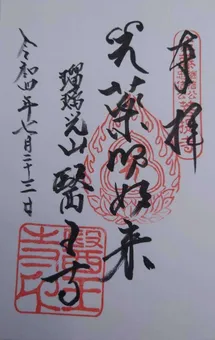 奉拝
光薬師如来
瑠璃光山 醫王寺
令和四年七月二十三日